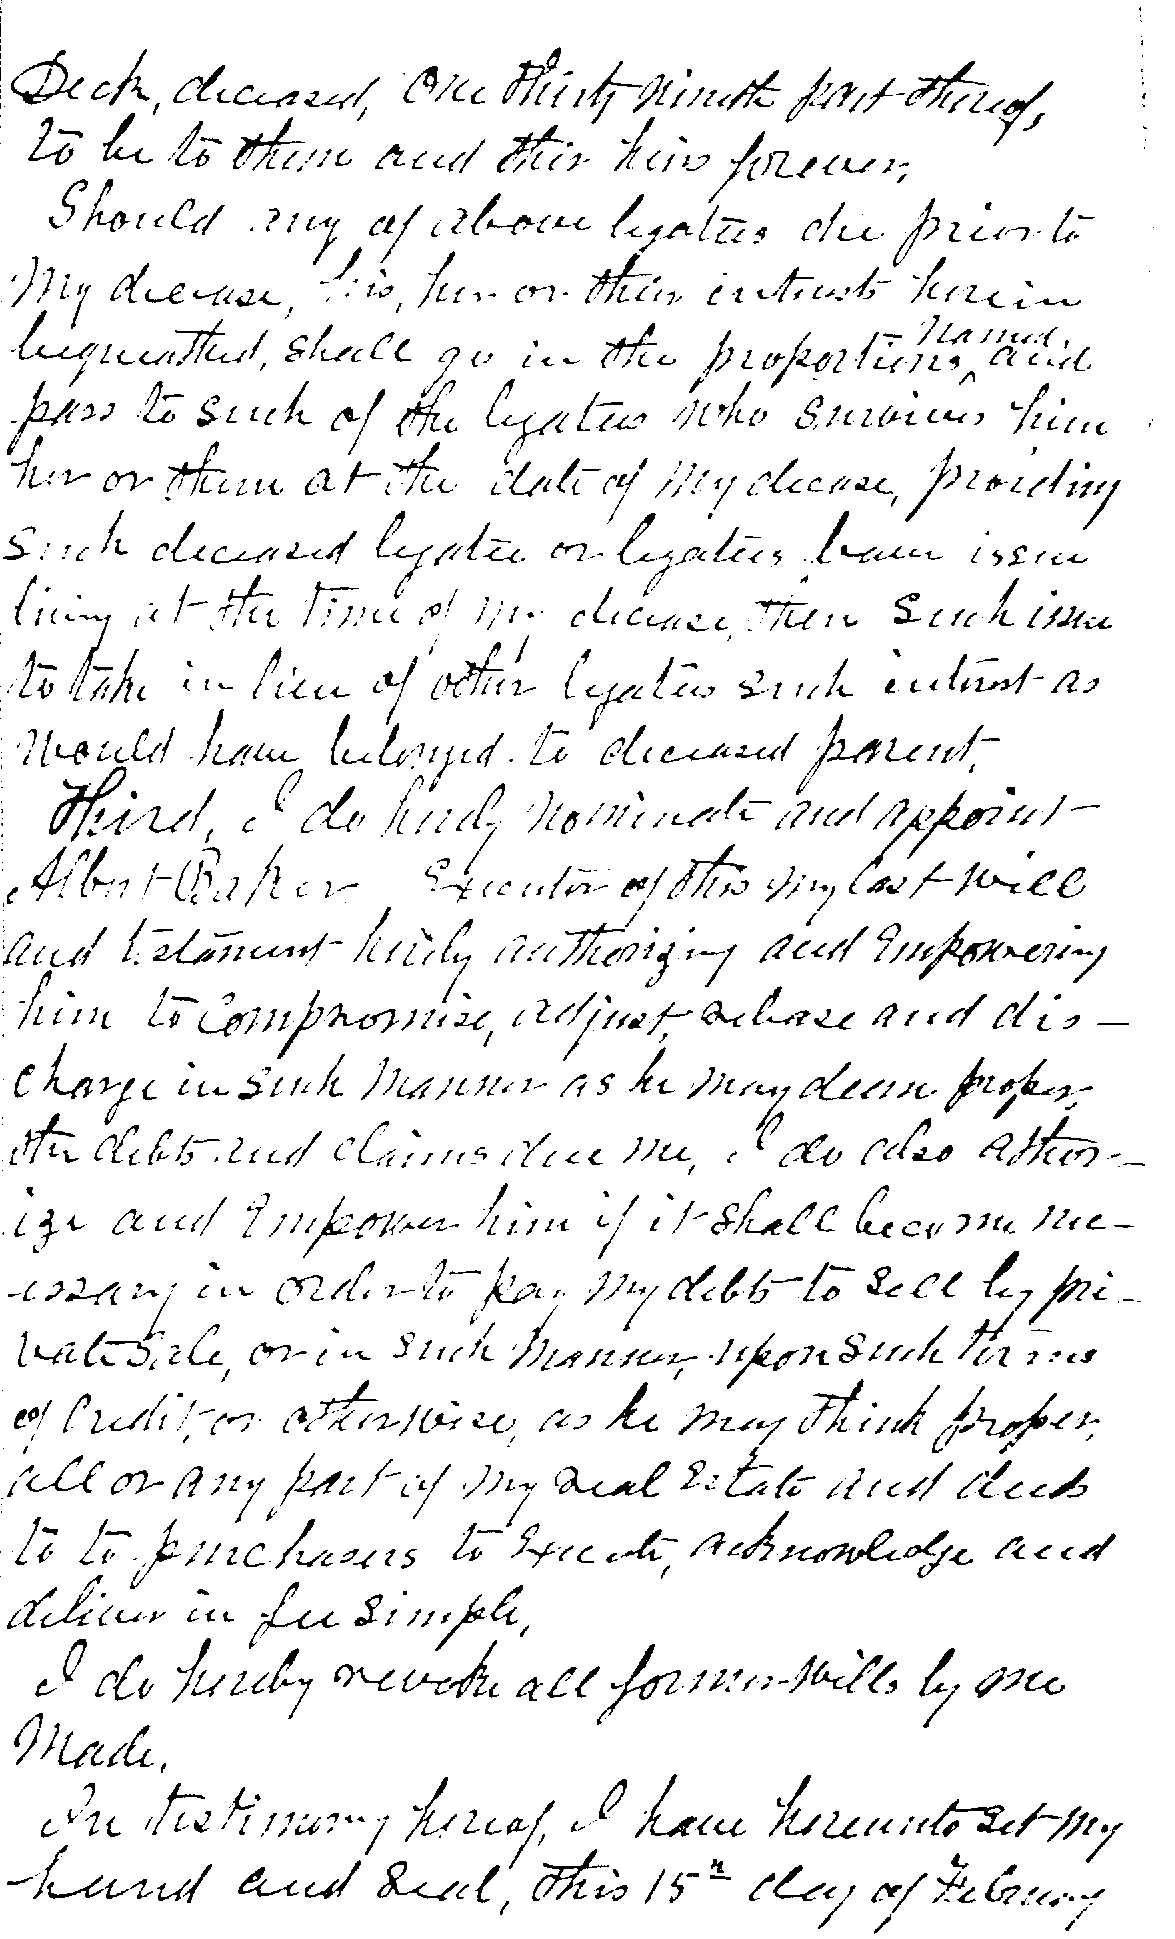 Deck, deceased, One thirty ninth part thereof,
to be to them and their heirs forever,
Should any of above legatees die prior to
My decease, his, her or their interests herein
bequeathed, shall go in the proportions ^named. and
pass to such of the legatees who survives him
her or them at the date of my decease, providing
such deceased legatee or legatees, have issue
living at the time of my decease, then such issue
to take in lieu of other legatees such interest as
would have belonged to deceased parent,
Third, I do herely nominate and appoint
Albert Baker Executor of this my last will
and testament hereby authorizing and Empowering
him to Compromise, adjust, release and dis-
charge in such manner as he may deem proper,
the debts and claims due me, I do also athor-
ize and Empower him if it shall become ne-
cessary in order to pay my debts to sell by pri-
vate sale, or in such manner, upon such terms
of Credit, or otherwise, as he may think proper,
all or any part of my real Estate and deeds
to to purchasers to Execute, acknowledge and
deliver in fee simple,
I do hereby revoke all former wills by me
Made.
In testimony hereof, I have hereunto set my
hand and seal, this 15th day of February